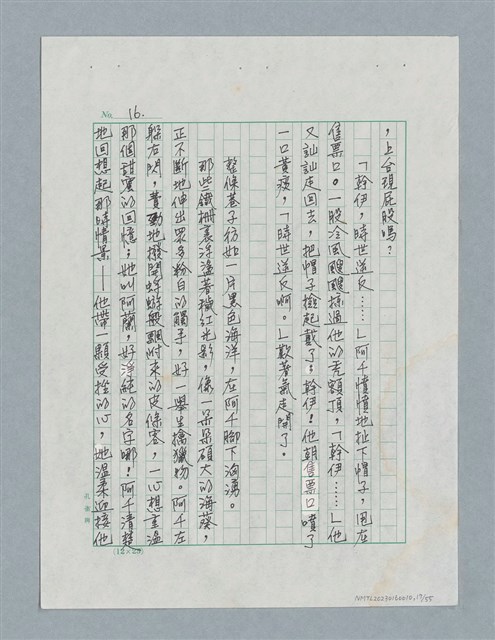 No. 16.
，上台現屁股嗎？
「幹伊，時世逆反……」阿千憤憤地扯下帽子，甩在
售票口。一股冷風颼颼掃過他的禿額頂，「幹伊……」他
又訕訕走回去，把帽子撿起戴了；幹伊！他朝售票口噴了
一口黃痰，「時世逆反啊。」歎著氣走開了。
整條巷子彷如一片黑色海洋，在阿千腳下洶湧。
那些鐵柵裏浮溫著橘紅光影，像一朵朵碩大的海葵，
正不斷地伸出眾多粉白的觸手，好一舉生擒獵物。阿千左
躲右閃，費勁地撥開蜉蝣般飄附來的皮條客，一心想重溫
那個甜蜜的回憶；她叫阿蘭，好淨純的名字哪！阿千清楚
地回想起那時情景——他帶一顆受挫的心，她溫柔迎接他
(12×25)
NMTL20230160010, 17/55